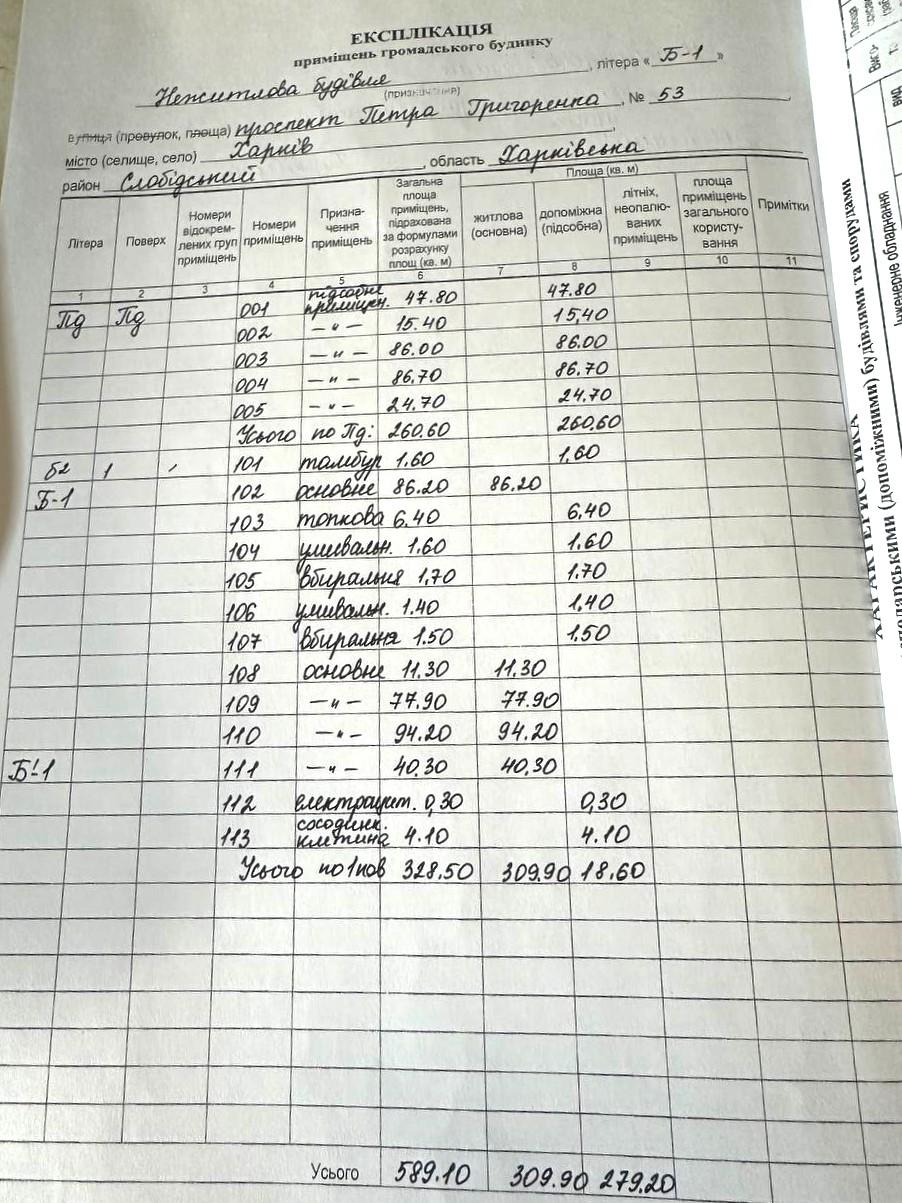 ЕКСПЛІКАЦІЯ
приміщень громадського будинку
Нежитлова будівля, літера « Б-1 »
(призначення)
вулиця (провулок, площа) проспект Петра Григоренка, № 53
місто (селище, село) Харків,
район Слобідський, область Харківська
Літера Поверх Номери відокремлених груп приміщень Номери приміщень Призначення приміщень Загальна площа приміщень, підрахована за формулами розрахунку площ (кв. м) Площа (кв. м) житлова (основна) допоміжна (підсобна) літніх, неопалюваних приміщень площа приміщень загального користування Примітки
1 2 3 4 5 6 7 8 9 10 11
Пд Пд 001 підсобне приміщен. 47.80 47.80
002 —"— 15.40 15,40
003 —"— 86.00 86.00
004 —"— 86,70 86.70
005 —"— 24.70 24.70
Усього по Пд: 260.60 260,60
б2 1 101 тамбур 1.60 1,60
Б-1 102 основне 86.20 86.20
103 топкова 6,40 6,40
104 умивальн. 1.60 1.60
105 вбиральня 1,70 1.70
106 умивальн. 1.40 1,40
107 вбиральня 1.50 1,50
108 основне 11.30 11.30
109 —"— 77.90 77.90
110 —"— 94.20 94.20
Б'-1 111 —"— 40.30 40,30
112 електрощит. 0,30 0,30
113 сходинк. клітина 4.10 4.10
Усього по 1 пов 328.50 309.90 18.60
Усього 589.10 309.90 279.20
ХАРАКТЕРИСТИКА
господарськими (допоміжними) будівлями та спорудами
Інженерне обладнання
вид
Площа